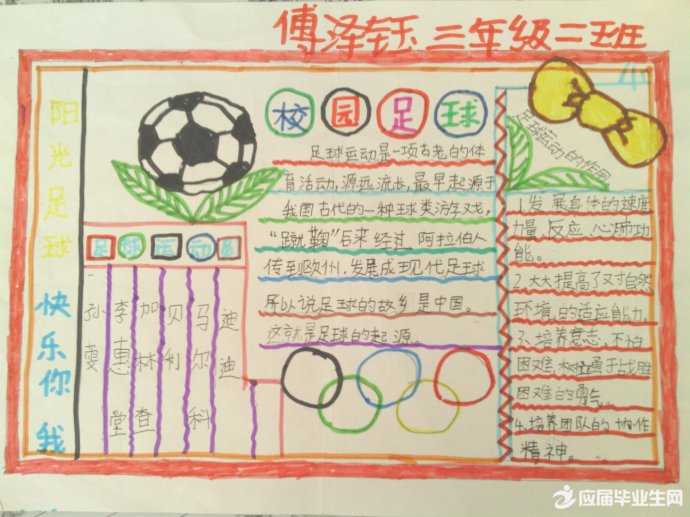 傅泽钰三年级二班
阳光足球
快乐你我
校园足球
足球运动是一项古老的体
育活动,源远流长,最早起源于
我国古代的一种球类游戏,
“蹴鞠”后来经过阿拉伯人
传到欧州,发展成现代足球
所以说足球的故乡是中国。
这就是足球的起源。
足球运动员
孙雯
李惠堂
加林查
贝利
马尔科
迪迪
足球运动的作用
1.发展身体的速度
力量反应,心肺功
能。
2.大大提高了对自然
环境,的适应能力
3.培养意志,不怕
困难,勇于战胜
困难的勇气。
4.培养团队的协作
精神。
应届毕业生网